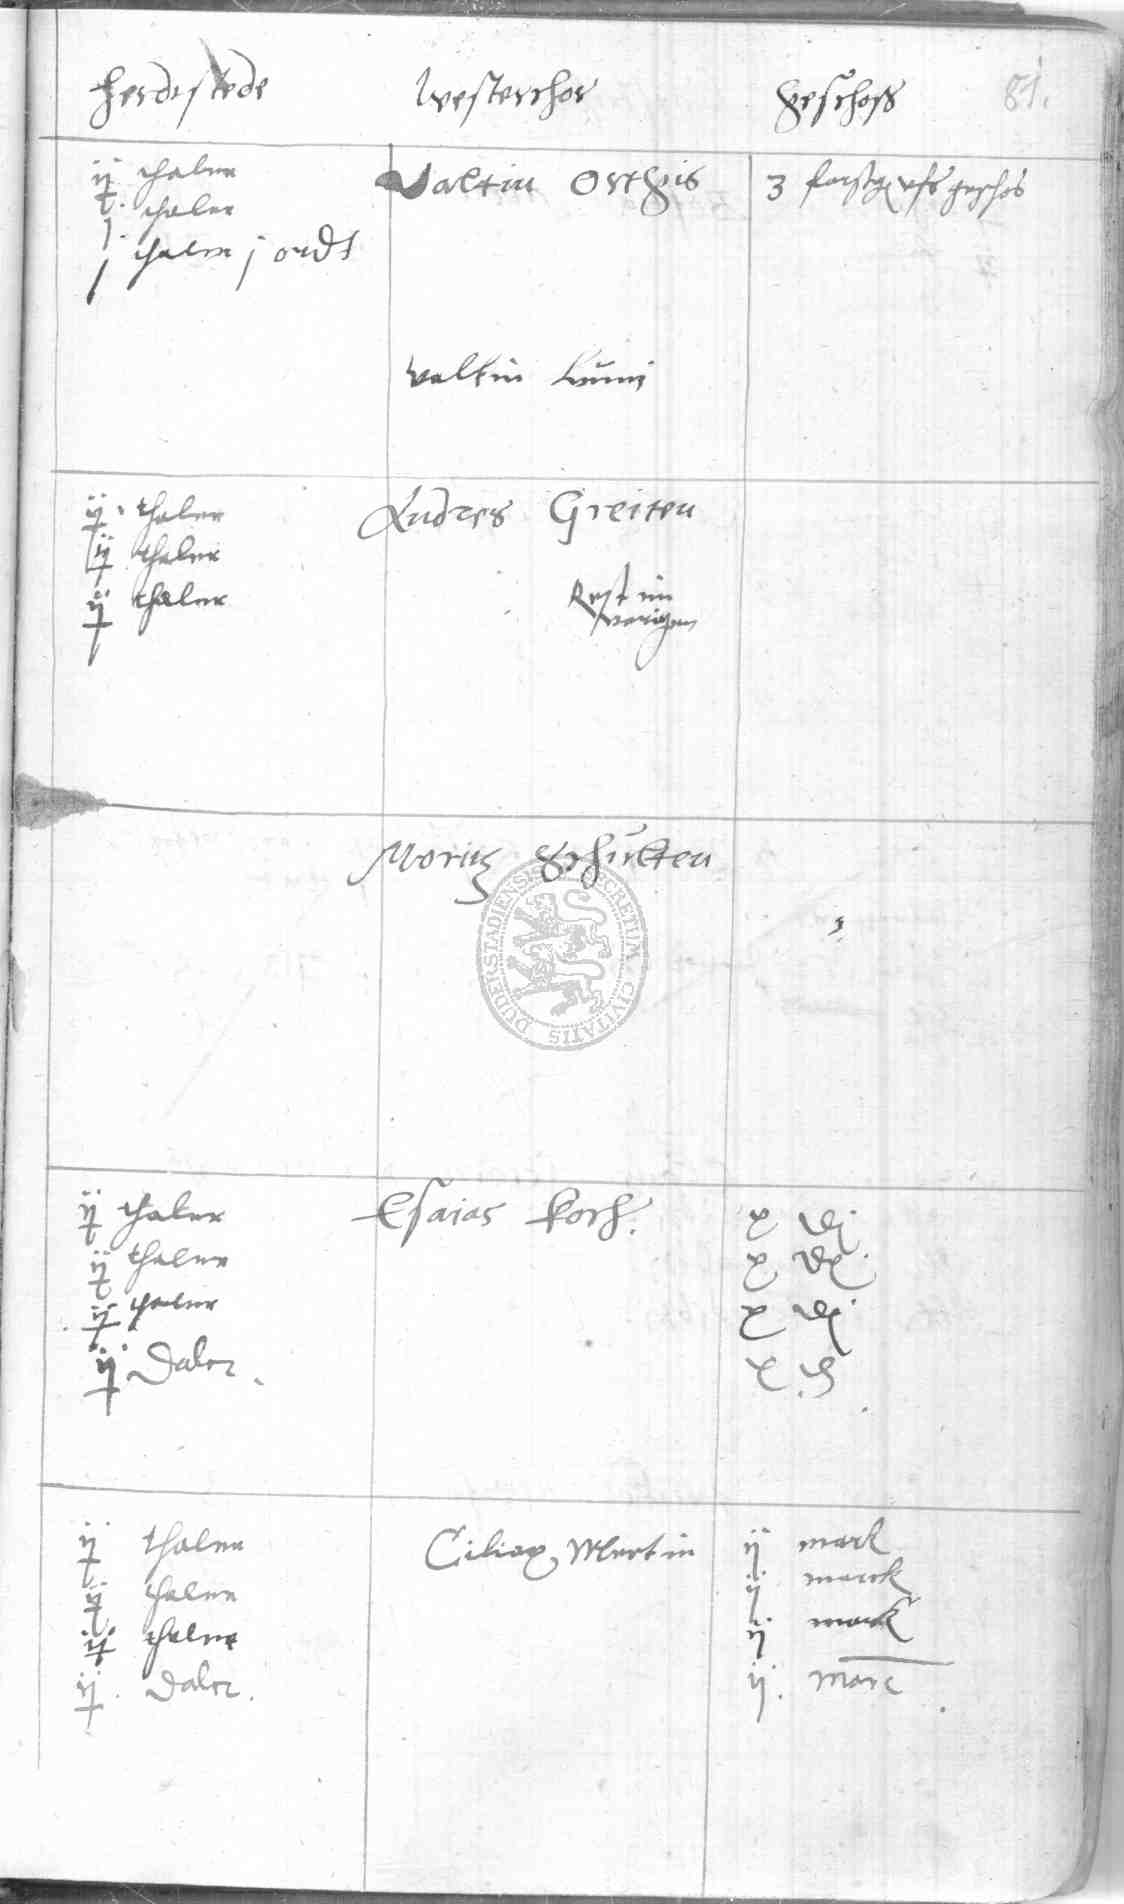 Herdestede Westerthor Geschoss 81.
ij thaler Valtin Ortgis 3
j thaler
j thaler j ordt
Valtin
ij thaler Andres Greiten
ij thaler
ij thaler Rest im
vorigen
Moritz Schulten
DUDERSTADIENSIS SECRETUM CIVITATIS
ij thaler Esaias Koch.
ij thaler
ij thaler
ij Daler.
ij thaler Ciliax Mertin ij mark
ij thaler ij marck
ij thaler ij mark
ij. Daler. ij. marc